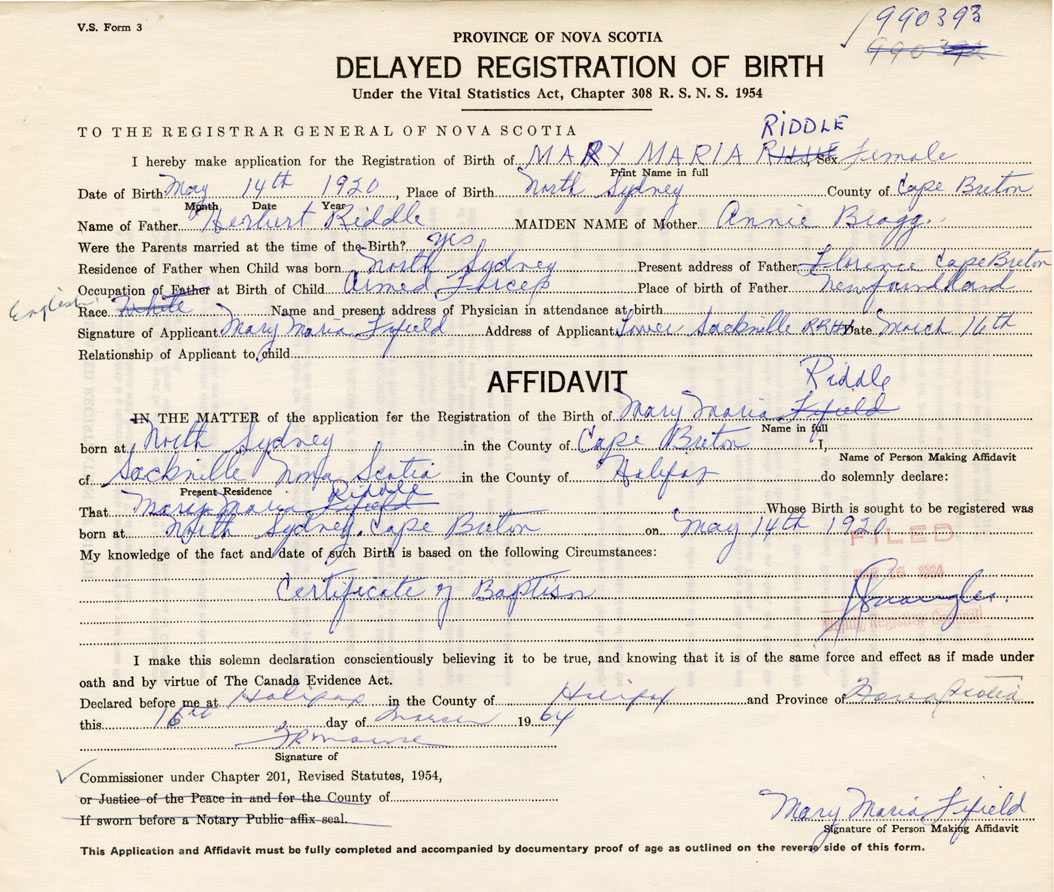 V.S. Form 3
990393
990394
PROVINCE OF NOVA SCOTIA
DELAYED REGISTRATION OF BIRTH
Under the Vital Statistics Act, Chapter 308 R. S. N. S. 1954
TO THE REGISTRAR GENERAL OF NOVA SCOTIA
RIDDLE
I hereby make application for the Registration of Birth of MARY MARIA Sex Female
Print Name in full
Date of Birth May 14th 1920, Place of Birth North Sydney County of Cape Breton
Month Date Year
Name of Father Herbert Riddle MAIDEN NAME of Mother Annie Bragg.
Were the Parents married at the time of the Birth? yes
Residence of Father when Child was born North Sydney Present address of Father Florence Cape Breton
Occupation of Father at Birth of Child Armed Forces Place of birth of Father Newfoundland
English
Race White Name and present address of Physician in attendance at birth
Signature of Applicant Mary Maria Fifield Address of Applicant Lower Sackville RR#1 Date March 16th
Relationship of Applicant to child
AFFIDAVIT
Riddle
IN THE MATTER of the application for the Registration of the Birth of Mary Maria Fifield
Name in full
born at North Sydney in the County of Cape Breton I,
Name of Person Making Affidavit
of Sackville Nova Scotia in the County of Halifax do solemnly declare:
Present Residence
Riddle
That Mary Maria Fifield Whose Birth is sought to be registered was
born at North Sydney, Cape Breton on May 14th 1920
FILED
My knowledge of the fact and date of such Birth is based on the following Circumstances:
16 1964
Certificate of Baptism
Deputy Registrar General
I make this solemn declaration conscientiously believing it to be true, and knowing that it is of the same force and effect as if made under
oath and by virtue of The Canada Evidence Act.
Declared before me at Halifax in the County of Halifax and Province of Nova Scotia
this 16th day of March 1964
Signature of
Commissioner under Chapter 201, Revised Statutes, 1954,
or Justice of the Peace in and for the County of
If sworn before a Notary Public affix seal.
Mary Maria Fifield
Signature of Person Making Affidavit
This Application and Affidavit must be fully completed and accompanied by documentary proof of age as outlined on the reverse side of this form.